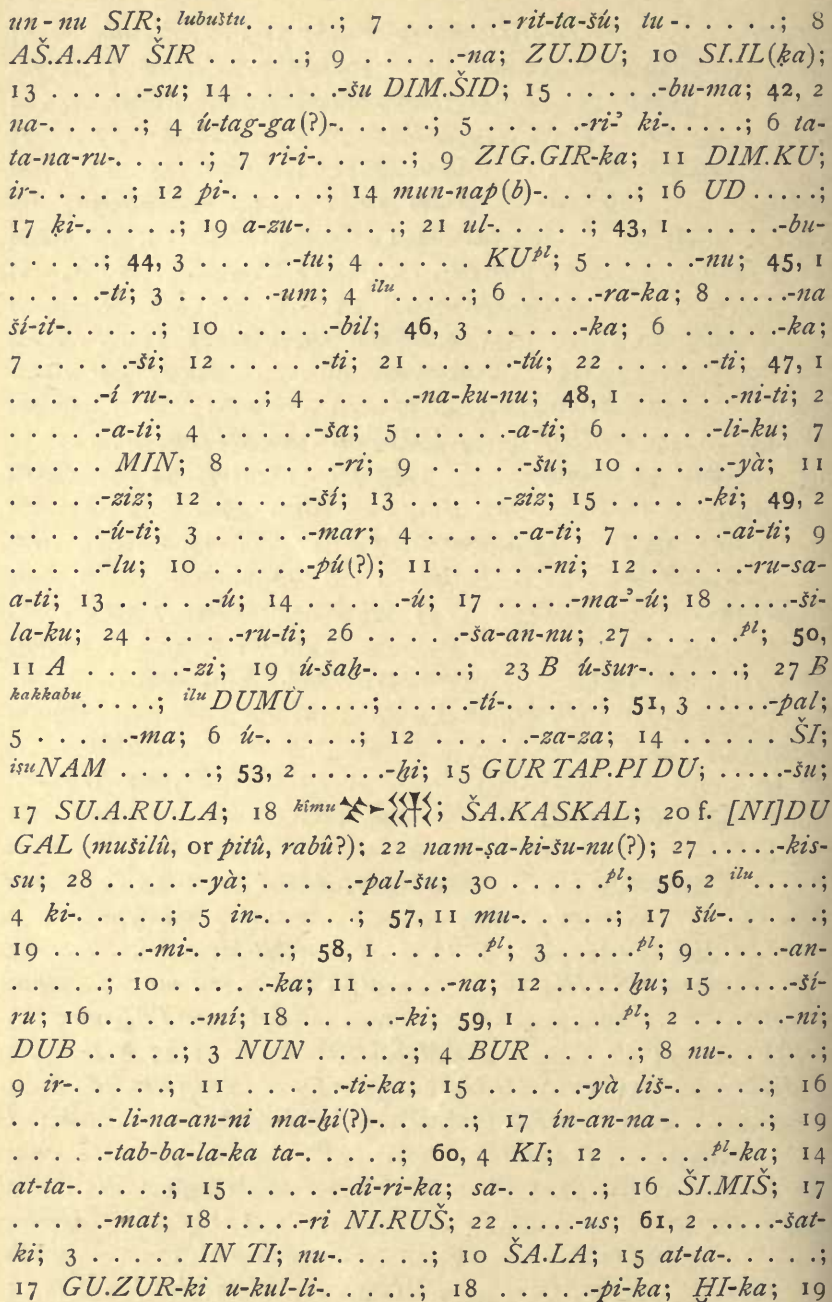 un-nu SIR; lubuštu. . . . .; 7 . . . . .-rit-ta-šú; tu-. . . . .; 8
AŠ.A.AN ŠIR . . . . .; 9 . . . . .-na; ZU.DU; 10 SI.IL(ḳa);
13 . . . . .-su; 14 . . . . .-šu DIM.ŠID; 15 . . . . .-bu-ma; 42, 2
na-. . . . .; 4 ú-tag-ga(?)-. . . . .; 5 . . . . .-ri-ʾ ki-. . . . .; 6 ta-
ta-na-ru-. . . . .; 7 ri-i-. . . . .; 9 ZIG.GIR-ka; 11 DIM.KU;
ir-. . . . .; 12 pi-. . . . .; 14 mun-nap(b)-. . . . .; 16 UD . . . . .;
17 ḳi-. . . . .; 19 a-zu-. . . . .; 21 ul-. . . . .; 43, 1 . . . . .-bu-
. . . . .; 44, 3 . . . . .-tu; 4 . . . . . KUpl; 5 . . . . .-nu; 45, 1
. . . . .-ti; 3 . . . . .-um; 4 ilu. . . . .; 6 . . . . .-ra-ka; 8 . . . . .-na
ší-it-. . . . .; 10 . . . . .-bil; 46, 3 . . . . .-ka; 6 . . . . .-ka;
7 . . . . .-ši; 12 . . . . .-ti; 21 . . . . .-tú; 22 . . . . .-ti; 47, 1
. . . . .-í ru-. . . . .; 4 . . . . .-na-ku-nu; 48, 1 . . . . .-ni-ti; 2
. . . . .-a-ti; 4 . . . . .-ša; 5 . . . . .-a-ti; 6 . . . . .-li-ku; 7
. . . . . MIN; 8 . . . . .-ri; 9 . . . . .-šu; 10 . . . . .-yà; 11
. . . . .-ziz; 12 . . . . .-ší; 13 . . . . .-ziz; 15 . . . . .-ki; 49, 2
. . . . .-ú-ti; 3 . . . . .-mar; 4 . . . . .-a-ti; 7 . . . . .-ai-ti; 9
. . . . .-lu; 10 . . . . .-pú(?); 11 . . . . .-ni; 12 . . . . .-ru-sa-
a-ti; 13 . . . . .-ú; 14 . . . . .-ú; 17 . . . . .-ma-ʾ-ú; 18 . . . . .-ši-
la-ku; 24 . . . . .-ru-ti; 26 . . . . .-ša-an-nu; 27 . . . . .pl; 50,
11 A . . . . .-zi; 19 ú-šaḫ-. . . . .; 23 B ú-šur-. . . . .; 27 B
kakkabu. . . . .; ilu DUMÙ. . . . .; . . . . .-tí-. . . . .; 51, 3 . . . . .-pal;
5 . . . . .-ma; 6 ú-. . . . .; 12 . . . . .-za-za; 14 . . . . . ŠI;
iṣuNAM . . . . .; 53, 2 . . . . .-ḫi; 15 GUR TAP.PI DU; . . . . .-šu;
17 SU.A.RU.LA; 18 ḳímu ; ŠA.KASKAL; 20 f. [NI]DU
GAL (mušilû, or pitû, rabû?); 22 nam-ṣa-ki-šu-nu(?); 27 . . . . .-kis-
su; 28 . . . . .-yà; . . . . .-pal-šu; 30 . . . . .pl; 56, 2 ilu. . . . .;
4 ki-. . . . .; 5 in-. . . . .; 57, 11 mu-. . . . .; 17 šú-. . . . .;
19 . . . . .-mi-. . . . .; 58, 1 . . . . .pl; 3 . . . . .pl; 9 . . . . .-an-
. . . . .; 10 . . . . .-ka; 11 . . . . .-na; 12 . . . . . ḫu; 15 . . . . .-ší-
ru; 16 . . . . .-mí; 18 . . . . .-ki; 59, 1 . . . . .pl; 2 . . . . .-ni;
DUB . . . . .; 3 NUN . . . . .; 4 BUR . . . . .; 8 nu-. . . . .;
9 ir-. . . . .; 11 . . . . .-ti-ka; 15 . . . . .-yà liš-. . . . .; 16
. . . . .-li-na-an-ni ma-ḫi(?)-. . . . .; 17 ín-an-na-. . . . .; 19
. . . . .-tab-ba-la-ka ta-. . . . .; 60, 4 KI; 12 . . . . .pl-ka; 14
at-ta-. . . . .; 15 . . . . .-di-ri-ka; sa-. . . . .; 16 ŠI.MIŠ; 17
. . . . .-mat; 18 . . . . .-ri NI.RUŠ; 22 . . . . .-us; 61, 2 . . . . .-šat-
ki; 3 . . . . . IN TI; nu-. . . . .; 10 ŠA.LA; 15 at-ta-. . . . .;
17 GU.ZUR-ki u-kul-li-. . . . .; 18 . . . . .-pi-ka; ḪI-ka; 19